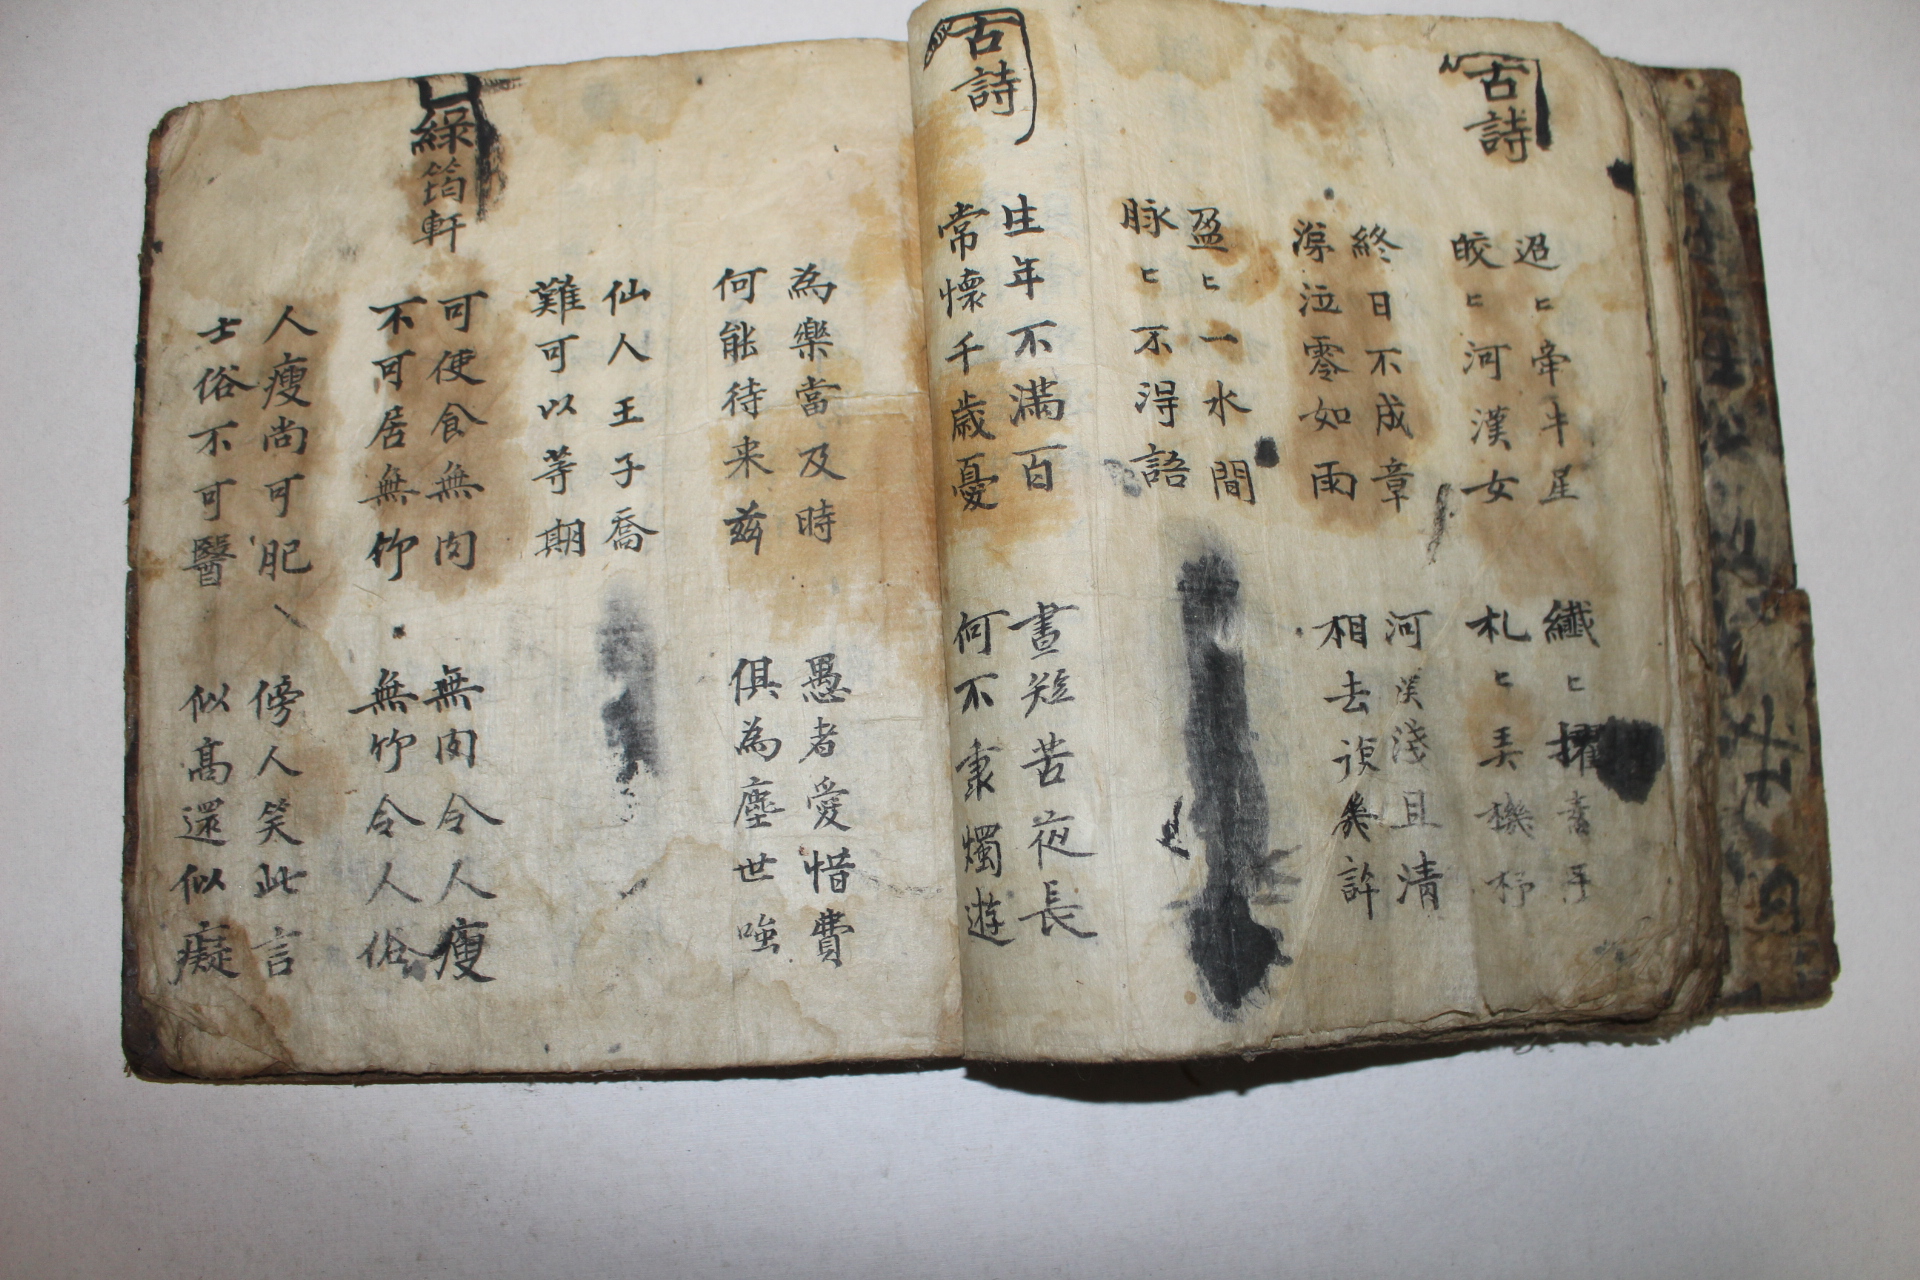 古詩
迢〻牽牛星 纖〻擢素手
皎〻河漢女 札〻弄機杼
終日不成章 河漢淺且清
涕泣零如雨 相去復幾許
盈〻一水間
脉〻不得語
古詩
生年不滿百 晝短苦夜長
常懷千歲憂 何不秉燭遊
為樂當及時 愚者愛惜費
何能待来茲 俱為塵世嗤
仙人王子喬
難可以等期
綠筠軒
可使食無肉 無肉令人瘦
不可居無竹 無竹令人俗
人瘦尚可肥 傍人笑此言
士俗不可醫 似高還似癡